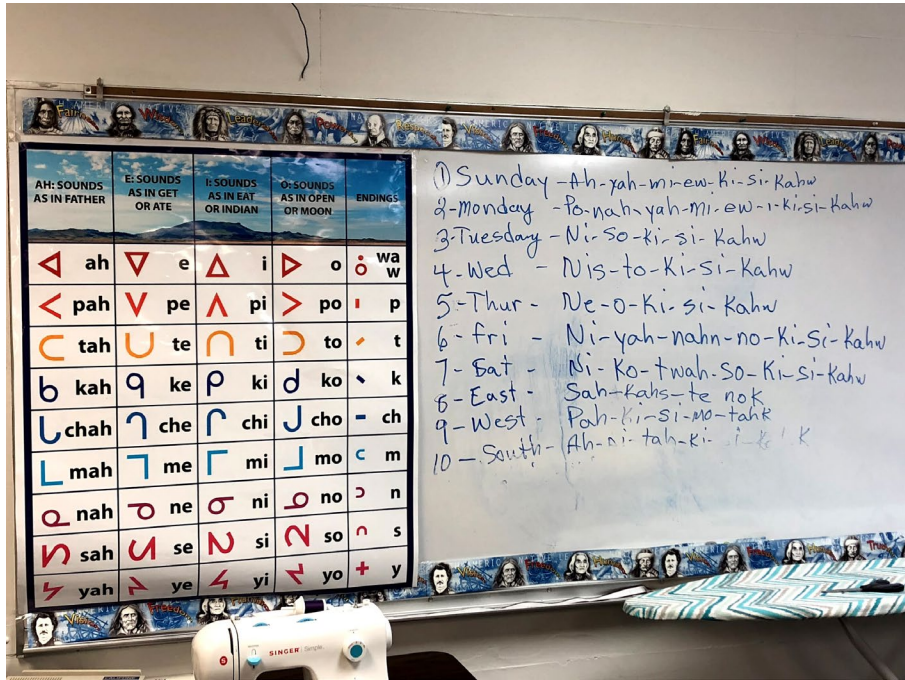 AH: SOUNDS AS IN FATHER E: SOUNDS AS IN GET OR ATE I: SOUNDS AS IN EAT OR INDIAN O: SOUNDS AS IN OPEN OR MOON ENDINGS
ᐊ ah ᐁ e ᐃ i ᐅ o wa w
ᐸ pah ᐯ pe ᐱ pi ᐳ po ᑊ p
ᑕ tah ᑌ te ᑎ ti ᑐ to ᐟ t
ᑲ kah ᑫ ke ᑭ ki ᑯ ko ᐠ k
ᒐ chah ᒉ che ᒋ chi ᒍ cho ᐨ ch
ᒪ mah ᒣ me ᒥ mi ᒧ mo ᒼ m
ᓇ nah ᓀ ne ᓂ ni ᓄ no ᐣ n
ᓴ sah ᓭ se ᓯ si ᓱ so ᐢ s
ᔭ yah ᔦ ye ᔨ yi ᔪ yo + y
① Sunday - Ah-yah-mi-ew-Ki-si-Kahw
2-monday - Po-nah-yah-mi-ew-i-ki-si-Kahw
3-Tuesday - Ni-So-ki-si-Kahw
4-Wed - Nis-to-Ki-Si-Kahw
5-Thur - Ne-o-Ki-si-Kahw
6-fri - Ni-yah-nahn-no-Ki-Si-Kahw
7-Sat - Ni-Ko-twah-So-Ki-Si-Kahw
8-East - Sah-Kahs-te nok
9-West - Pah-Ki-Si-mo-tahk
10-South - Ah-pi-tah-Ki- K
SINGER Simple